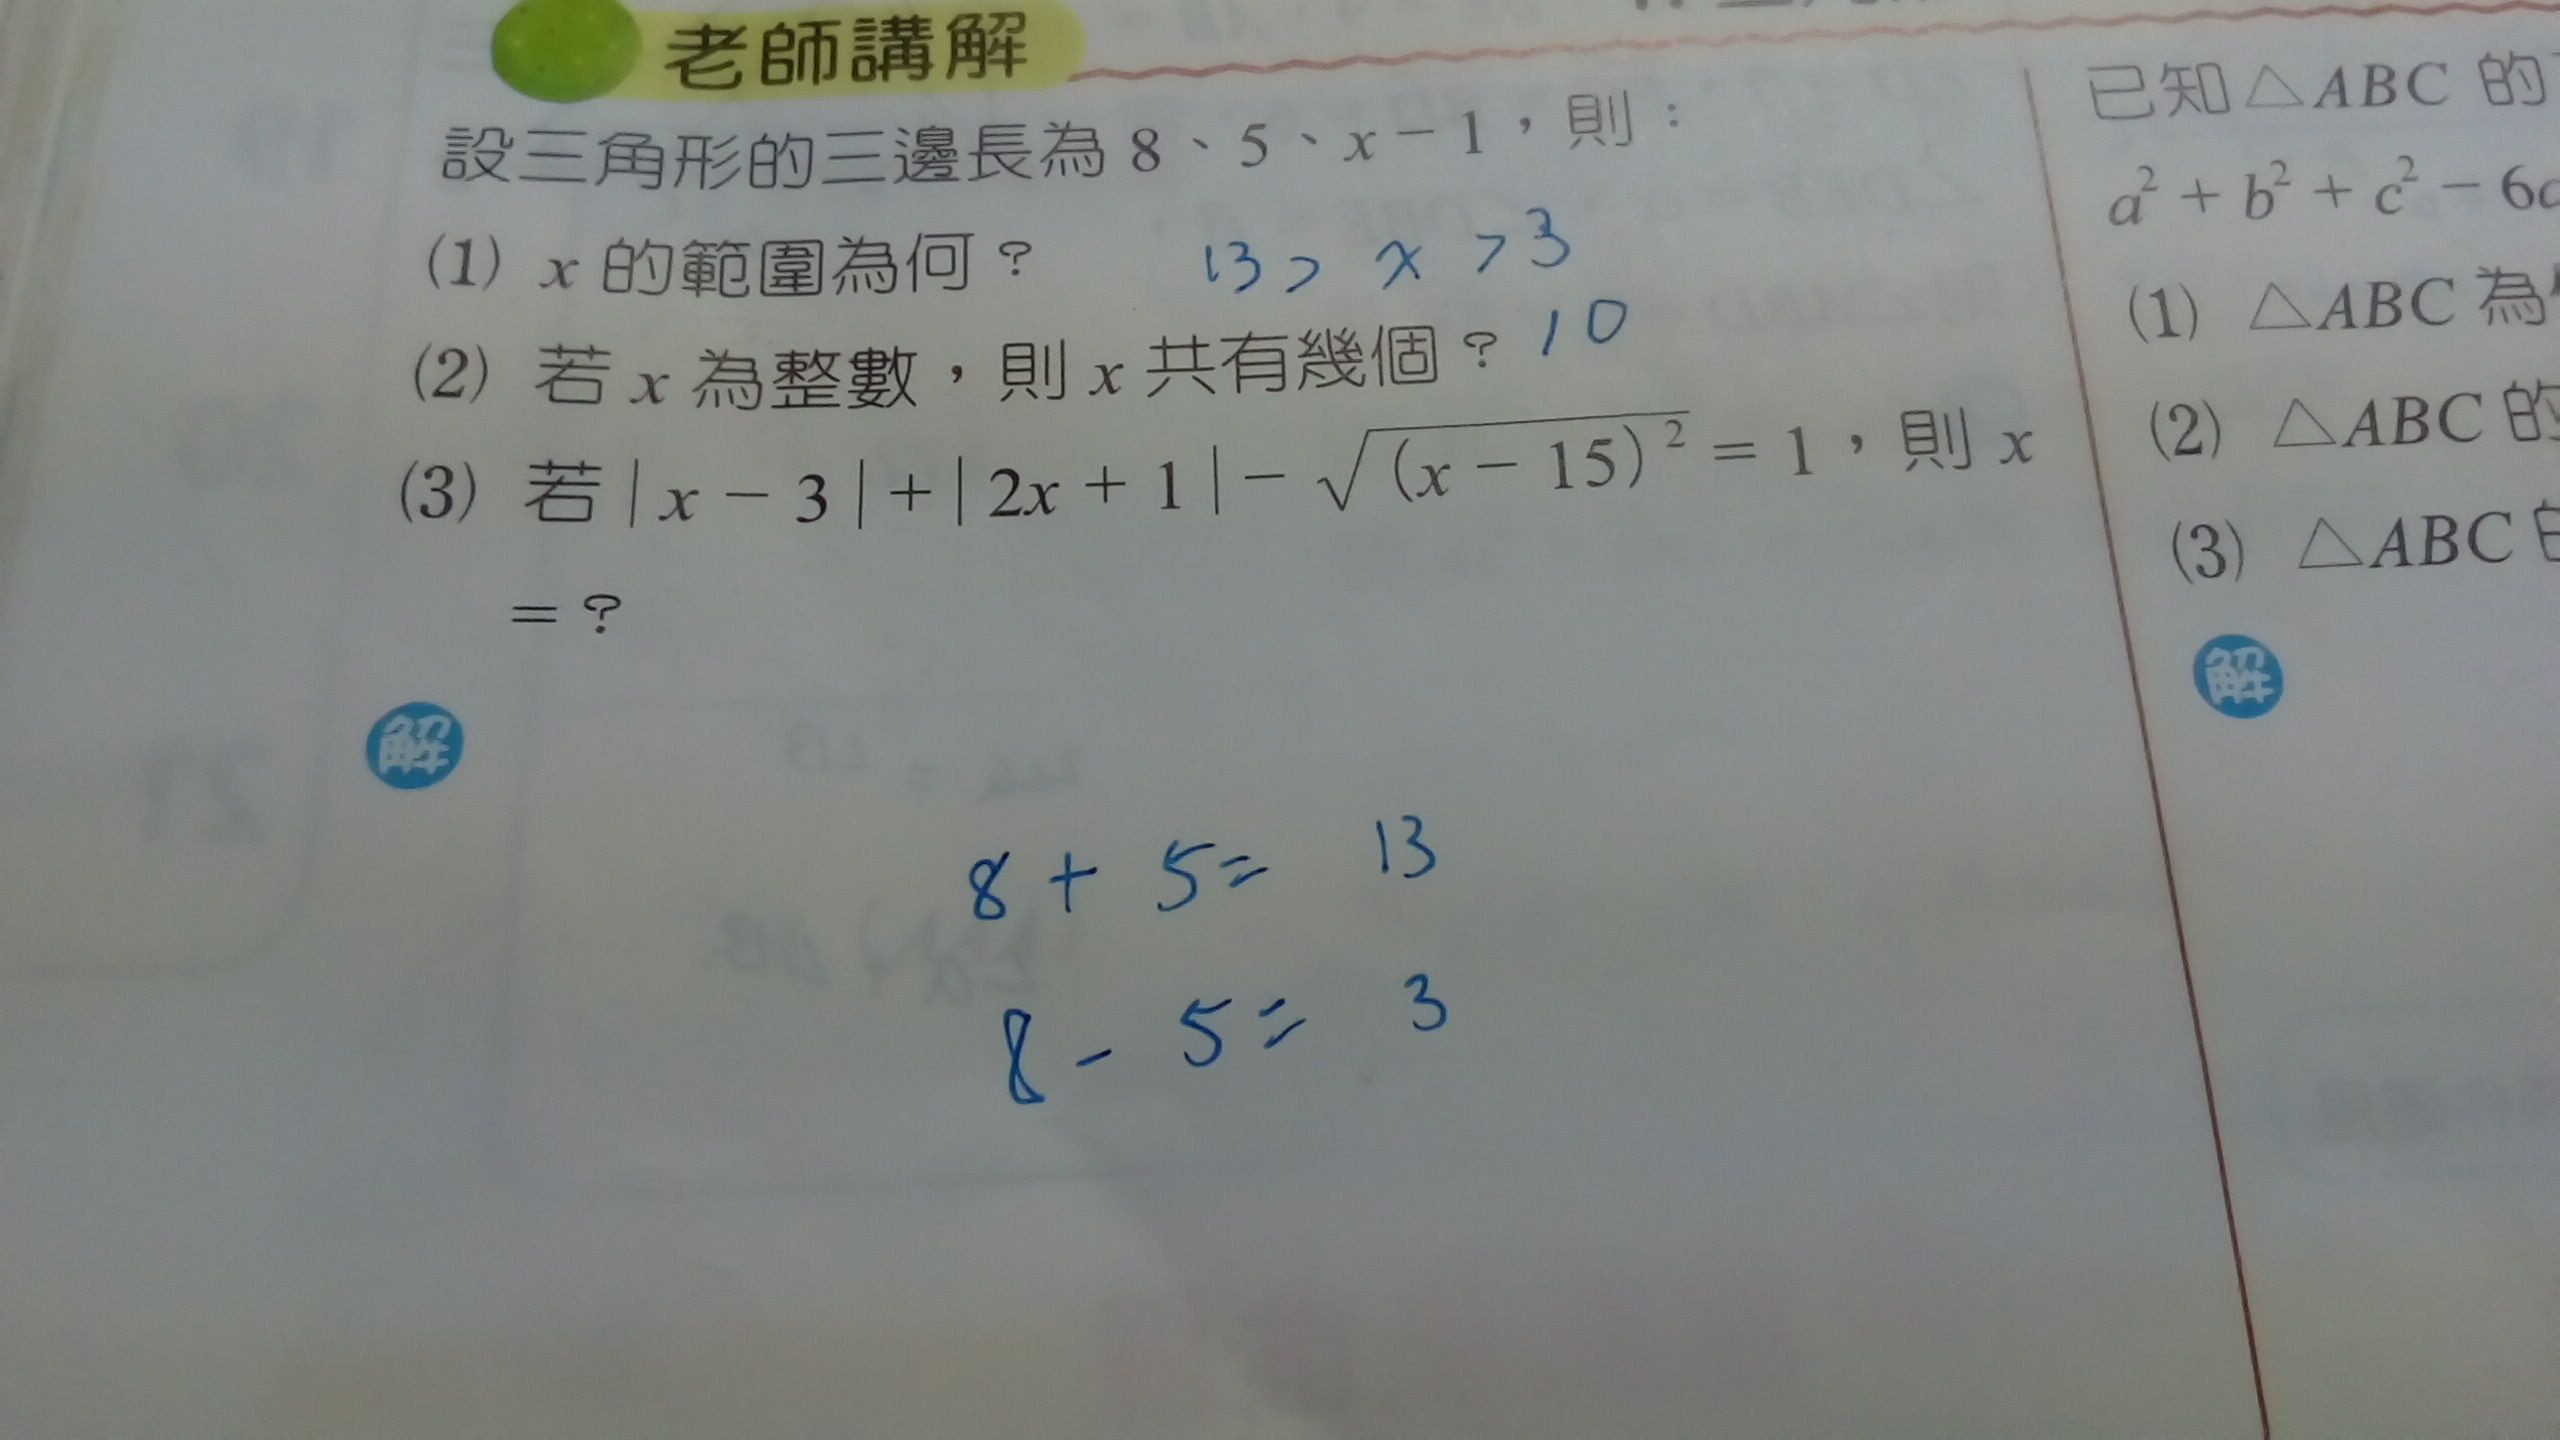 老師講解
設三角形的三邊長為 8、5、x－1，則：
(1) x 的範圍為何？ 13 > x > 3
(2) 若 x 為整數，則 x 共有幾個？ 10
(3) 若 | x － 3 | ＋ | 2x ＋ 1 | － √(x － 15)² ＝ 1，則 x
＝？
解
8 + 5 = 13
8 - 5 = 3
已知 △ABC 的
a² ＋ b² ＋ c² － 6
(1) △ABC 為
(2) △ABC 的
(3) △ABC 的
解